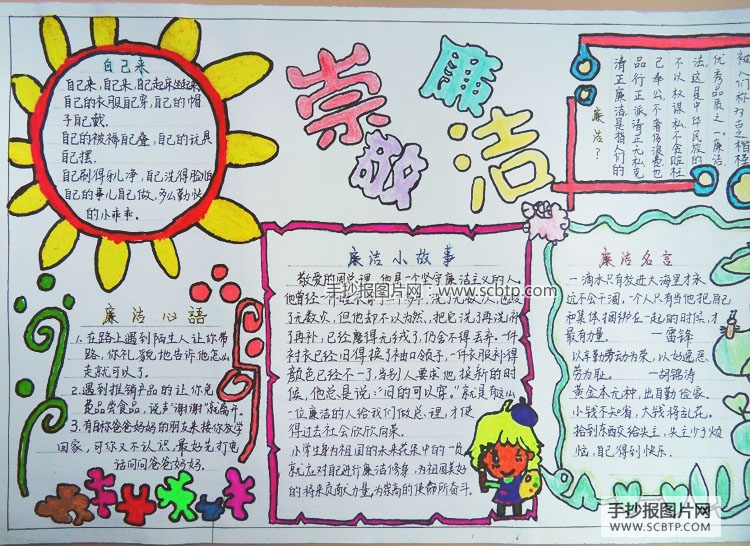 自己来
自己来,自己来,自己起床坐起来。
自己的衣服自己穿,自己的帽
子自己戴。
自己的被褥自己叠,自己的玩具
自己摆。
自己刷得牙儿净,自己洗得脸怕
自己的事儿自己做,多么勤快
的小乖乖。
崇敬
廉洁
被人们称为
优秀品质之一。廉洁
法。这是中华民族的
不以权谋私不会贬社
己奉公,不奢侈浪费也
品行正派清正无私克
清正廉洁,是指人们的
廉洁?
廉洁心語
1.在路上遇到陌生人让你带
路,你礼貌地告诉他怎么
走就可以了。
2.遇到推销产品的让你免
费品尝食品,说声“谢谢”和离开。
3.有自称爸爸妈妈的朋友来接你放学
回家,可你又不认识,最好先打电
话问问爸爸妈妈。
廉洁小故事
敬爱的周总理,他是一个坚守廉洁主义的人
他曾经一个
了无数次,但他却不以为然,把它洗了再洗,补
了再补,已经磨得无手戏了,仍舍不得丢弃。一件
衬衣已经旧得换了袖口领子,一件衣服补得
颜色已经不一了,当别人要求他换新的时
候,他总是说:“旧的可以穿。”就是有这
一位廉洁的人给我们做总理,才使
得过去社会欣欣向荣。
小学生身为祖国的未来花朵中的一员,
就应对自己进行廉洁修身,为祖国美好
的将来贡献力量,为崇高的使命所奋斗。
廉洁名言
一滴水只有放进大海里才永
远不会干涸,一个人只有当他把自己
和集体捆绑在一起的时候,才
最有力量。——雷锋
以辛勤劳动为荣,以好逸恶
劳为耻。——胡锦涛
黄金本无种,出自勤俭家。
小钱不知省,大钱将乱花。
拾到东西交给失主,失主少了烦
恼,自己得到快乐。
手抄报图片网·www.scbtp.com
手抄报图片网
WWW.SCBTP.COM